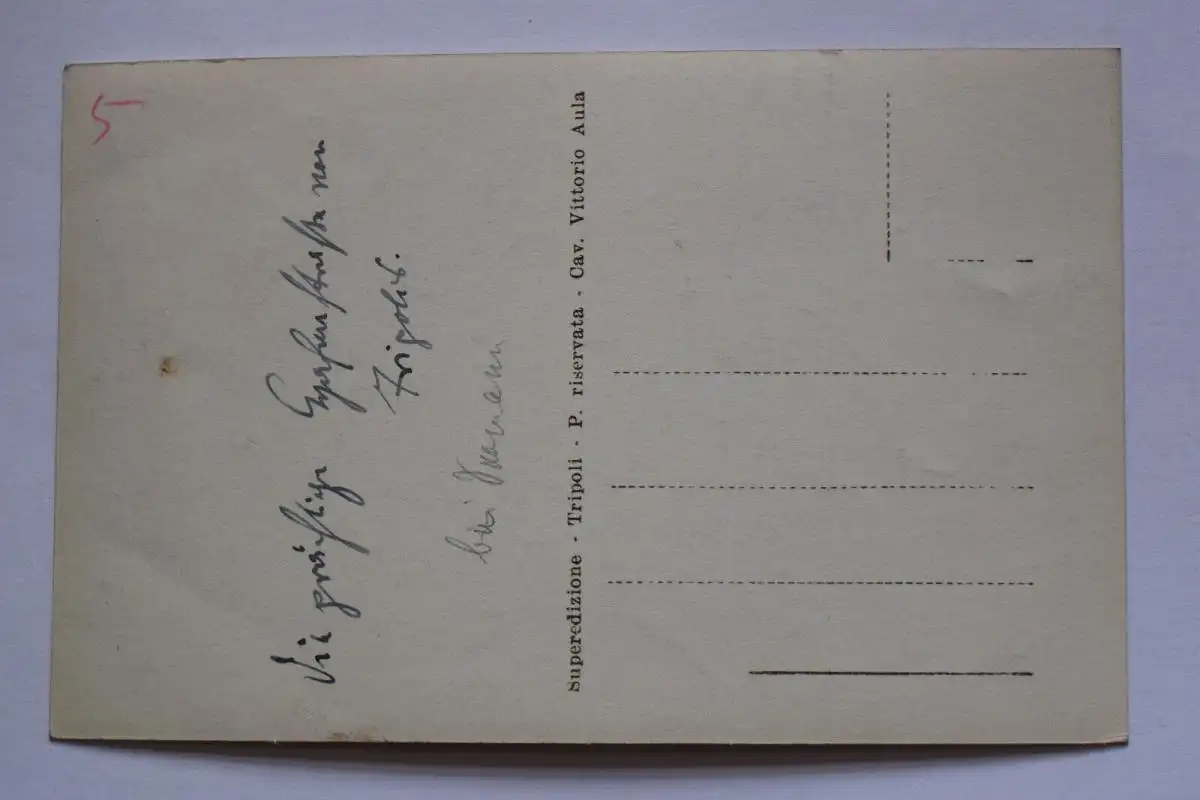 5
Die prächtige Hafenstraße von
Tripolis.
bei
Superedizione - Tripoli - P. riservata - Cav. Vittorio Aula